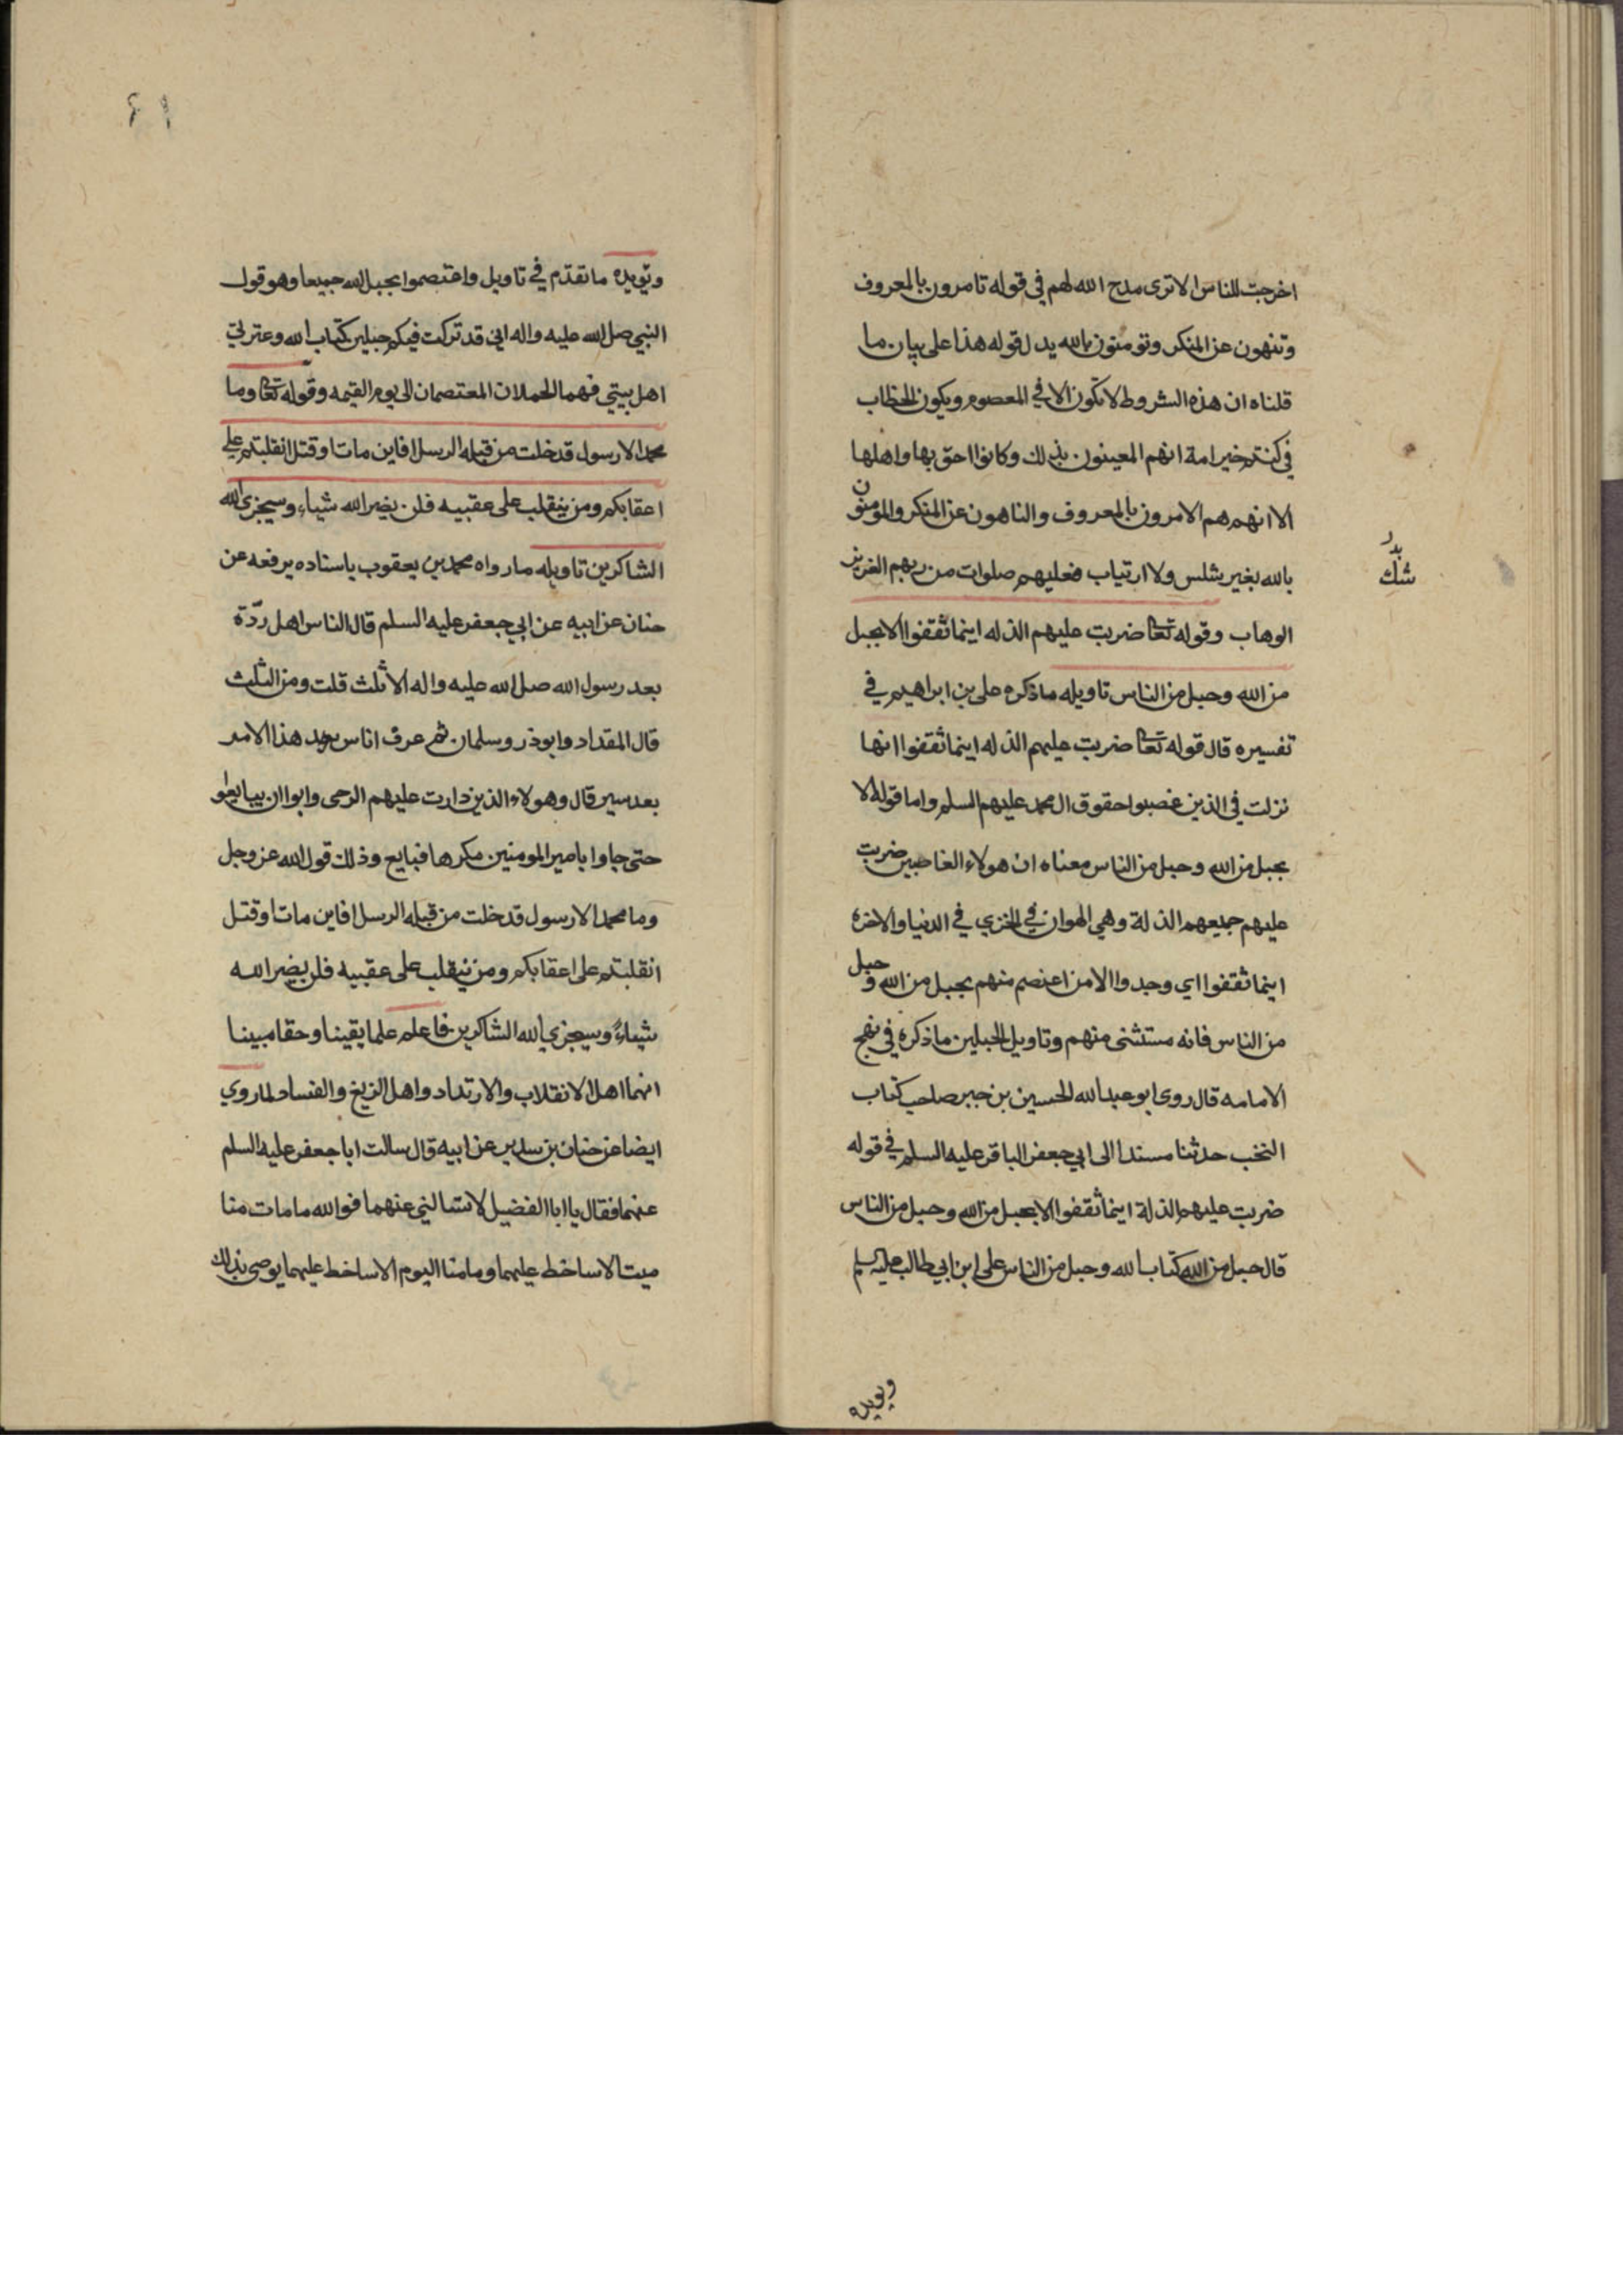 اخرجت للناس الا ترى مدح الله لهم في قوله تامرون بالمعروف
وتنهون عن المنكر وتومنون بالله يدل قوله هذا على بيان ما
قلناه ان هذه الشروط لا تكون الا في المعصوم ويكون الخطاب
في كنتم خير امة انهم المعينون بذلك وكانوا احق بها واهلها
الا انهم هم الامرون بالمعروف والناهون عن المنكر والمومنون
بالله بغير شلس ولا ارتياب فعليهم صلوات من ربهم العزيز
شك
الوهاب وقوله تعا ضربت عليهم الذله اينما ثقفوا الا بحبل
من الله وحبل من الناس تاويله ما ذكره على بن ابراهيم في
تفسيره قال قوله تعا ضربت عليهم الذله اينما ثقفوا انها
نزلت في الذين غصبوا حقوق ال محمد عليهم السلم واما قوله الا
بحبل من الله وحبل من الناس معناه ان هولاء الغاصبين ضربت
عليهم جميعهم الذلة وهي الهوان في الخزي في الدنيا والاخرة
اينما ثقفوا اي وجدوا الا من اعتصم منهم بحبل من الله وحبل
من الناس فانه مستثنى منهم وتاويل الحبلين ما ذكره في نهج
الامامه قال روى ابو عبد الله الحسين بن جبير صاحب كتاب
النخب حدثنا مسندا الى ابي جعفر الباقر عليه السلم في قوله
ضربت عليهم الذلة اينما ثقفوا الا بحبل من الله وحبل من الناس
قال حبل من الله كتاب الله وحبل من الناس على ابن ابي طالب عليه السلم
ويويده
ويويده ما تقدم في تاويل واعتصموا بحبل الله جميعا وهو قول
النبي صلى الله عليه واله اني قد تركت فيكم حبلين كتاب الله وعترتي
اهل بيتي فهما الحملان المعتصمان الى يوم القيمه وقوله تعا وما
محمد الا رسول قد خلت من قبله الرسل افاين مات او قتل انقلبتم على
اعقابكم ومن ينقلب على عقبيه فلن يضر الله شياء وسيجزى الله
الشاكرين تاويله ما رواه محمد بن يعقوب باسناده يرفعه عن
حنان عن ابيه عن ابي جعفر عليه السلم قال الناس اهل ردّة
بعد رسول الله صلى الله عليه واله الا ثلث قلت ومن الثلث
قال المقداد وابوذر وسلمان ثم عرف اناس بعد هذا الامر
بعد سير قال وهولاء الذين دارت عليهم الرحى وابوا ان يبايعوا
حتى جاوا بامير المومنين مكرها فبايع وذلك قول الله عز وجل
وما محمد الا رسول قد خلت من قبله الرسل افاين مات او قتل
انقلبتم على اعقابكم ومن ينقلب على عقبيه فلن يضر الله
شياء وسيجزي الله الشاكرين فاعلم علما يقينا وحقا مبينا
انهما اهل الانقلاب والارتداد واهل الزيغ والفساد لما روي
ايضا عن حنان بن سدير عن ابيه قال سالت ابا جعفر عليه السلم
عنهما فقال يا ابا الفضيل لا تسالني عنهما فوالله ما مات منا
ميت الا ساخط عليهما وما منا اليوم الا ساخط عليهما يوصى بذلك